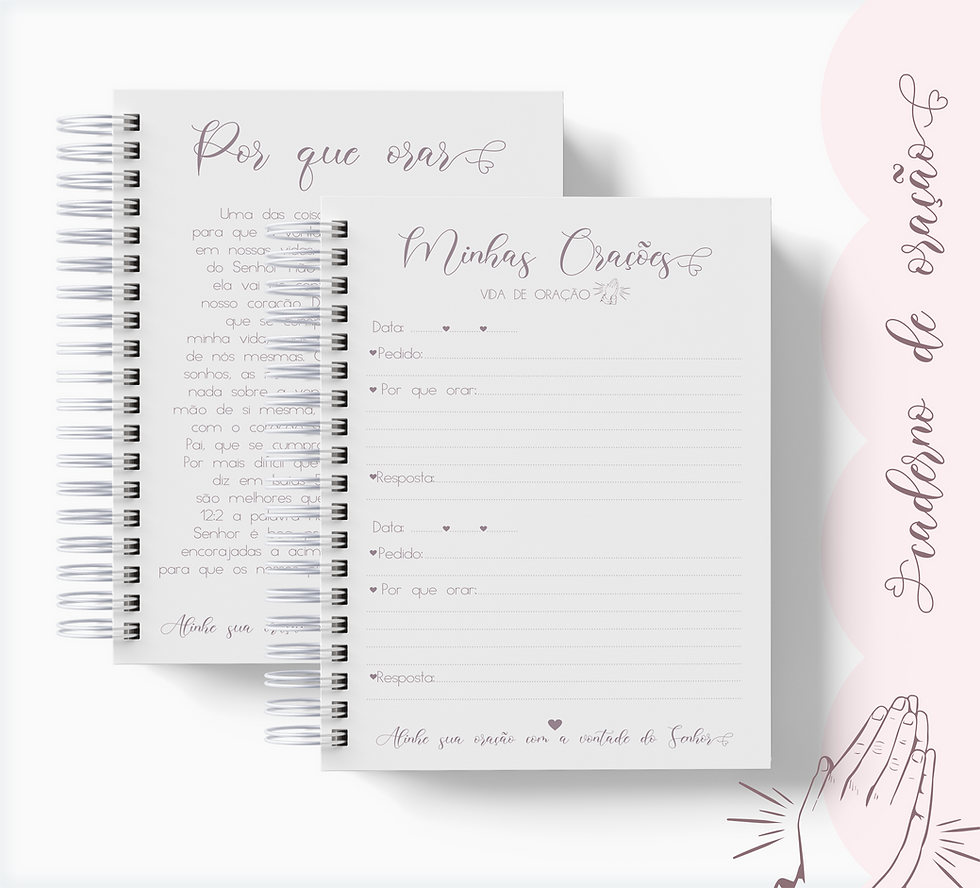 Por que orar
Uma das
para que
em nossas
do Senhor não
ela vai
nosso coração.
que se
minha vida,
de nós mesmas.
sonhos, as
nada sobre a
mão de si mesma,
com o
Pai, que se cumpra
Por mais difícil que
diz em Isaías
são melhores que
12:2 a palavra
Senhor é
encorajadas a
para que os
Alinhe sua
Minhas Orações
VIDA DE ORAÇÃO
Data:
Pedido:
Por que orar:
Resposta:
Data:
Pedido:
Por que orar:
Resposta:
Alinhe sua oração com a vontade do Senhor
caderno de oração